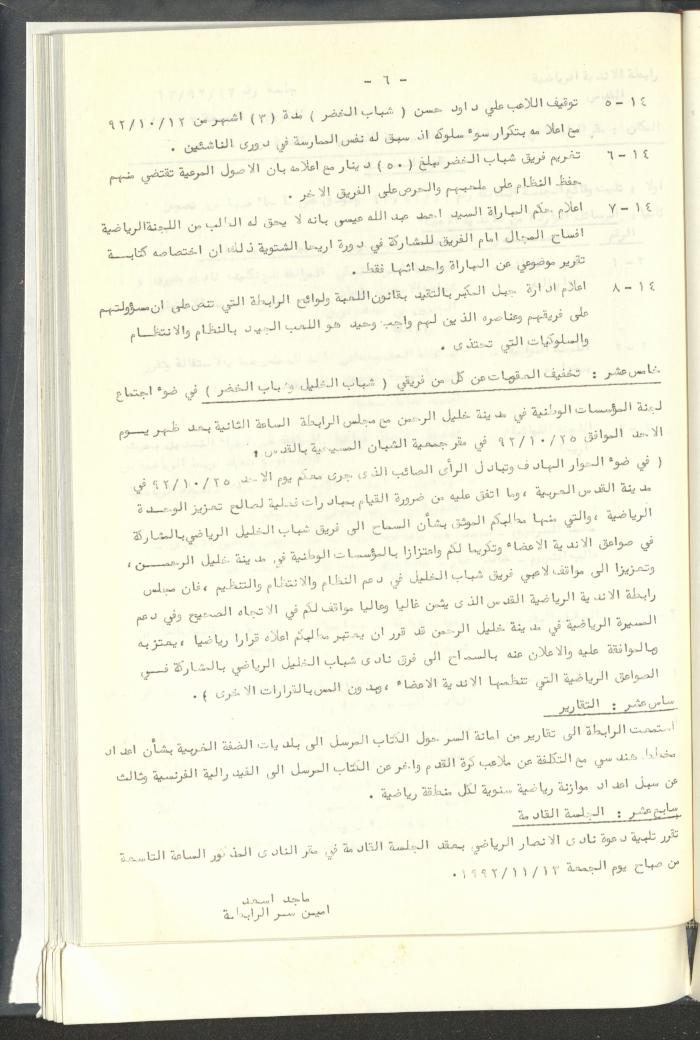 - ٦ -
١٤ - ٥ توقيف اللاعب علي داود حسن ( شباب الخضر ) لمدة (٣) اشهر من ٩٢/١٠/١٢
مع اعلامه بتكرار سوء سلوكه اذ سبق له نفس الممارسة في دورى الناشئين .
١٤ - ٦ تغريم فريق شباب الخضر مبلغ (٥٠) دينار مع اعلامه بان الاصول المرعية تقتضي منهم
حفظ النظام على ملعبهم والحرص على الفريق الاخر .
١٤ - ٧ اعلام حكم المباراة السيد احمد عبد الله عيسى بانه لا يحق له الطلب من اللجنة الرياضية
افساح المجال امام الفريق للمشاركة في دورة اريحا الشتوية ذلك ان اختصاصه كتابـــة
تقرير موضوعي عن المباراة واحداثها فقط .
١٤ - ٨ اعلام ادارة جبل المكبر بالتقيد بقانون اللعبة ولوائح الرابطة التي تنص على ان مسؤولتهم
على فريقهم وعناصره الذين لهم واجب وحيد هو اللعب الجيد بالنظام والانتظـــام
والسلوكيات التي تحتذى .
خامس عشر : تخفيف العقوبات عن كل من فريقي ( شباب الخليل وشباب الخضر ) في ضوء اجتماع
لجنة المؤسسات الوطنية في مدينة خليل الرحمن مع مجلس الرابطة الساعة الثانية بعد ظهر يـــوم
الاحد الموافق ٩٢/١٠/٢٥ في مقر جمعية الشبان المسيحية بالقدس ,
( في ضوء الحوار الهادف وتبادل الرأى الصائب الذى جرى معكم يوم الاحد ٩٢/١٠/٢٥ في
مدينة القدس العربية ، وما اتفق عليه من ضرورة القيام بمبادرات فعلية لصالح تعزيز الوحــدة
الرياضية ، والتي منها مطالبكم الموثق بشأن السماح الى فريق شباب الخليل الرياضي بالمشاركة
في صواعق الاندية الاعضاء وتكريما لكم واعتزازا بالمؤسسات الوطنية في مدينة خليل الرحمـــن ،
وتعزيزا الى مواقف لاعبي فريق شباب الخليل في دعم النظام والانتظام والتنظيم ، فان مجلس
رابطة الاندية الرياضية القدس الذى يثمن غاليا وعاليا مواقف لكم في الاتجاه الصحيح وفي دعم
المسيرة الرياضية في مدينة خليل الرحمن قد قرر ان يعتبر مطالبكم اعلاه قرارا رياضيا ، يعتز به
وبالموافقة عليه والاعلان عنه بالسماح الى فرق نادى شباب الخليل الرياضي بالمشاركة فـــي
الصواعق الرياضية التي تنظمها الاندية الاعضاء ، وبدون المس بالقرارات الاخرى ) .
سادس عشر : التقارير
استمعت الرابطة الى تقارير من امانة السر حول الكتاب المرسل الى بلديات الضفة الغربية بشأن اعداد
مخطط هندسي مع التكلفة عن ملاعب كرة القدم واخر عن الكتاب المرسل الى الفيدرالية الفرنسية وثالث
عن سبل اعداد موازنة رياضية سنوية لكل منطقة رياضية .
سابع عشر : الجلسة القادمة
تقرر تلبية دعوة نادى الانصار الرياضي بعقد الجلسة القادمة في مقر النادى المذكور الساعة التاسعة
من صباح يوم الجمعة ١٩٩٢/١١/١٣.
ماجد اسعد
امين سر الرابطة